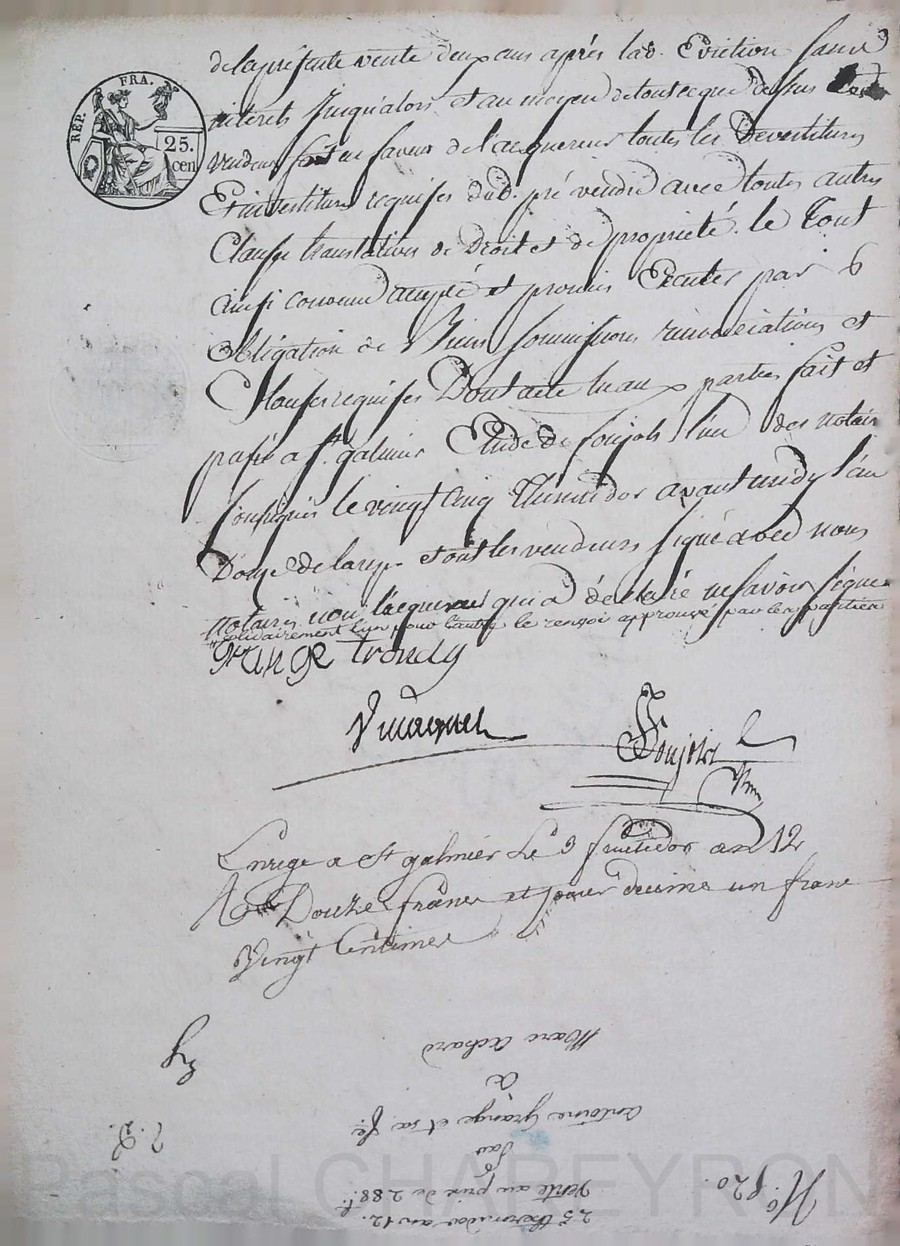 REP. FRA.
25.
cen
de la presente vente deux ans après lad. Eviction sans
interets jusqu'alors et au moyen de tout ce que dessus les
vendeurs font en faveur de l'acquereur toutes les Devestitures
Et investitures requises dud. pré vendu avec toutes autres
Clauses translatives de Droit et de propriété. le Tout
ainsi convenu accepté et promis Executer par
obligation de Biens soumissions renonciations et
Clauses requises Dont acte lu aux parties fait et
passé a St. galmier Etude de soujols l'un des notaires
soussignés le vingt cinq Thermidor avant midy l'an
Douze de la rep. et ont les vendeurs signé avec nous
notaires non l'acquereur qui a déclaré ne savoir signer
solidairement l'un pour l'autre le renvoi approuvé par les parties
grange trondy
Soujols
Enregé a St galmier Le 9 fructidor an 12
Reçu Douze francs et pour decime un franc
Vingt Centimes
N.º 820.
25 thermidor an 12.
Vente au prix de 288 f.
Par
antoine Grange et sa fe.
a
Marc Achard
Pascal CHABEYRON